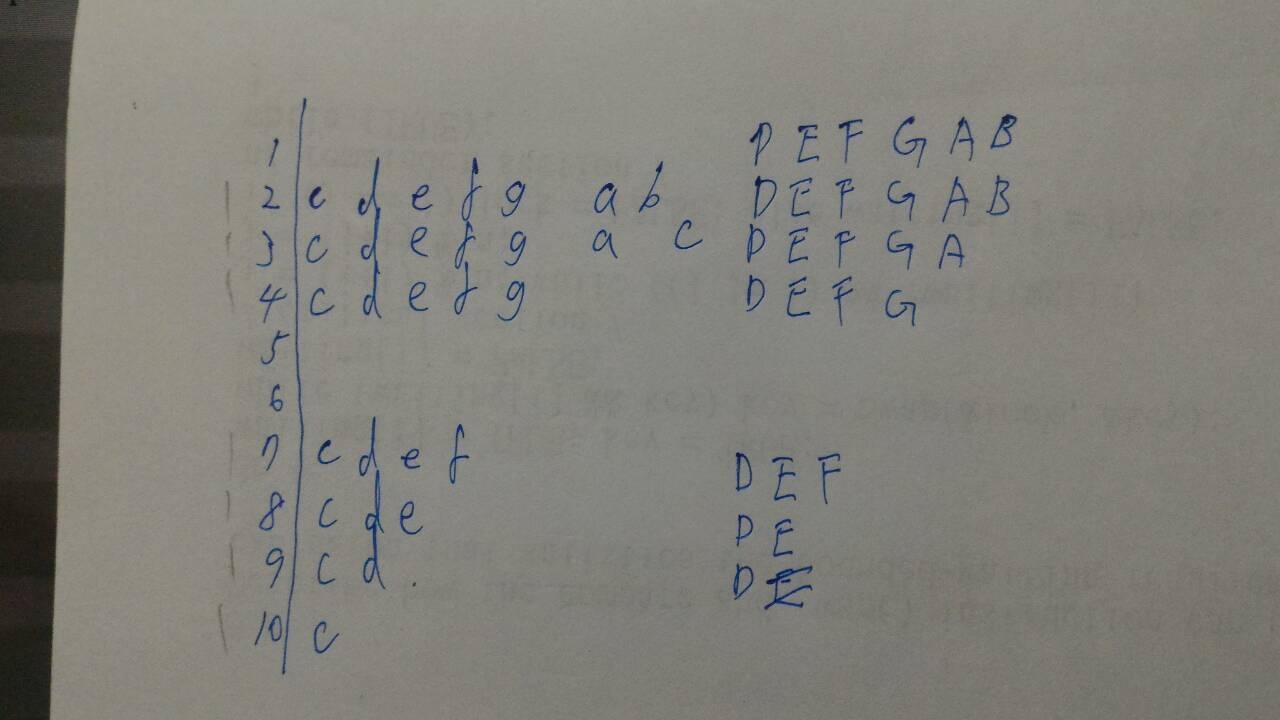 1 D E F G A B
2 c d e f g a b D E F G A B
3 c d e f g a c D E F G A
4 c d e f g D E F G
5
6
7 c d e f D E F
8 c d e D E
9 c d . D
10 c